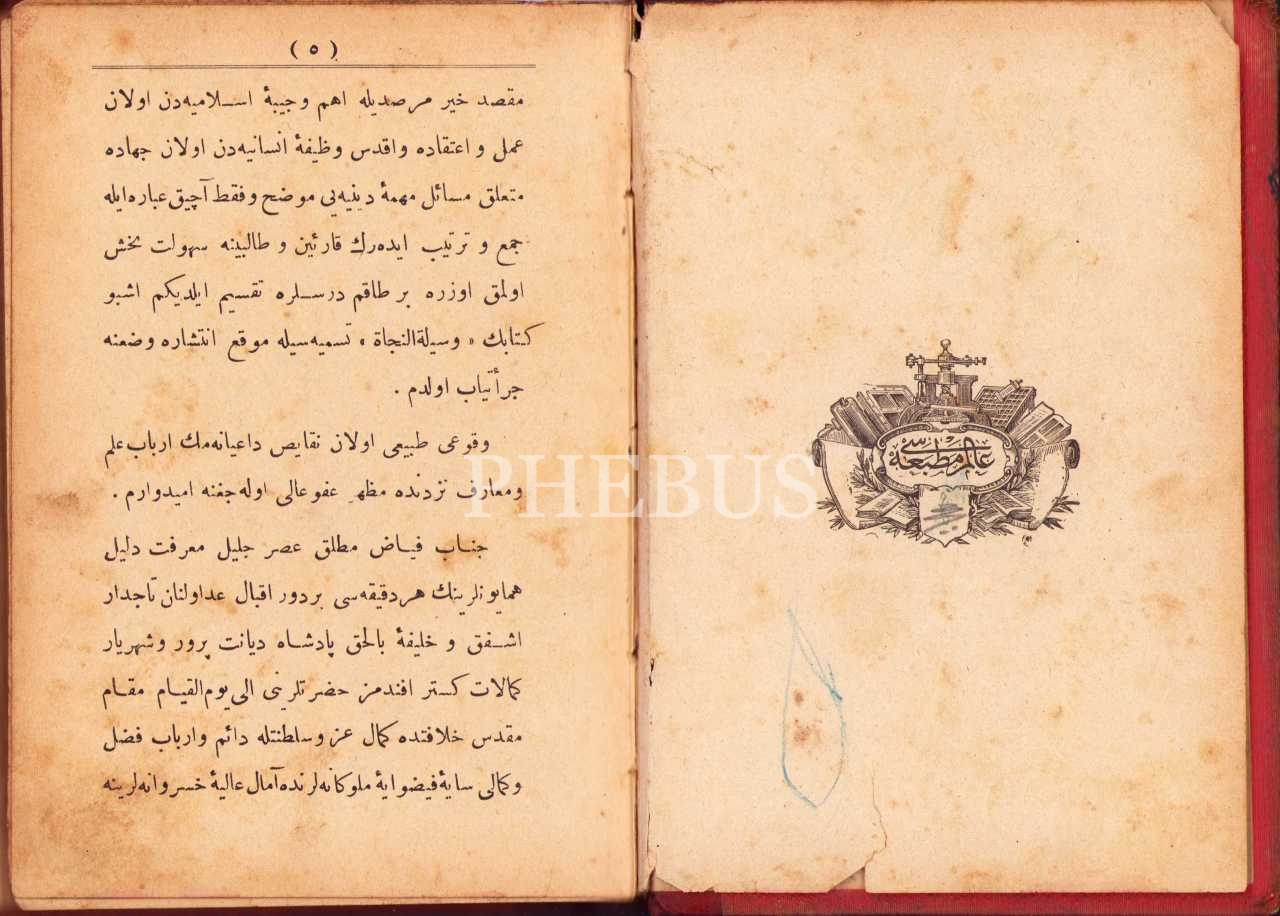 عالم مطبعه سی
( ٥ )
مقصد خیر مرصدیله اهم وجیبهٔ اسلامیه‌دن اولان
عمل و اعتقاده واقدس وظیفهٔ انسانیه‌دن اولان جهاده
متعلق مسائل مهمهٔ دینیه‌یی موضح وفقط آچیق عباره‌ایله
جمع و ترتیب ایده‌رك قارئین و طالبینه سهولت بخش
اولمق اوزره بر طاقم درسلره تقسیم ایلدیکم اشبو
کتابك « وسیلةالنجاة » تسمیه‌سیله موقع انتشاره وضعنه
جرأتیاب اولدم .
وقوعی طبیعی اولان نقایص داعیانه‌مك ارباب علم
ومعارف نزدنده مظهر عفوعالی اوله‌جغنه امیدوارم .
جناب فیاض مطلق عصر جلیل معرفت دلیل
همایونلرینك هردقیقه‌سی بردور اقبال عداولنان تاجدار
اشفق و خلیفهٔ بالحق پادشاه دیانت پرور وشهریار
کمالات کستر افندمز حضرتلرینی الی یوم‌القیام مقام
مقدس خلافتده کمال عز وسلطنتله دائم وارباب فضل
وکمالی سایهٔ فیضوایهٔ ملوکانه‌لرنده آمال عالیهٔ خسروانه‌لرینه
PHEBUS